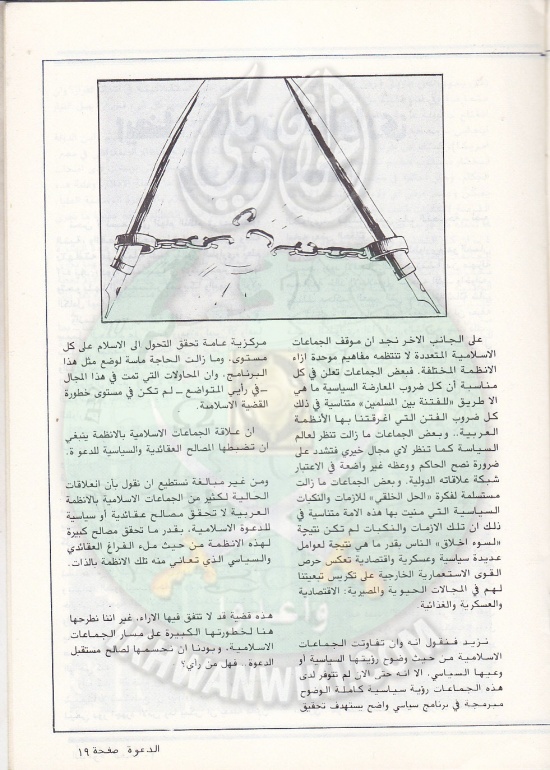 على الجانب الاخر نجد ان موقف الجماعات
الاسلامية المتعددة لا تنتظمه مفاهيم موحدة ازاء
الانظمة المختلفة. فبعض الجماعات تعلن في كل
مناسبة أن كل ضروب المعارضة السياسية ما هي
الا طريق «للفتنة بين المسلمين» متناسية في ذلك
كل ضروب الفتن التي اغرقتنا بها الأنظمة
العربية.. وبعض الجماعات ما زالت تنظر لعالم
السياسة كما تنظر لاي مجال خيري فتشدد على
ضرورة نصح الحاكم ووعظه غير واضعة في الاعتبار
شبكة علاقاته الدولية. وبعض الجماعات ما زالت
مستسلمة لفكرة «الحل الخلقي» للازمات والنكبات
السياسية التي منيت بها هذه الامة متناسية في
ذلك ان تلك الازمات والنكبات لم تكن نتيجة
«لسوء اخلاق» الناس بقدر ما هي نتيجة لعوامل
عديدة سياسية وعسكرية واقتصادية تعكس حرص
القوى الاستعمارية الخارجية على تكريس تبعيتنا
لهم في المجالات الحيوية والمصيرية: الاقتصادية
والعسكرية والغذائية.
نزيد فنقول انه وان تفاوتت الجماعات
الاسلامية من حيث وضوح رؤيتها السياسية أو
وعيها السياسي. الا انه حتى الان لم تتوفر لدى
هذه الجماعات رؤية سياسية كاملة الوضوح
مبرمجة في برنامج سياسي واضح يستهدف تحقيق
مركزية عامة تحقق التحول الى الاسلام على كل
مستوى. وما زالت الحاجة ماسة لوضع مثل هذا
البرنامج. وان المحاولات التي تمت في هذا المجال
-في رأيي المتواضع- لم تكن في مستوى خطورة
القضية الاسلامية.
ان علاقة الجماعات الاسلامية بالانظمة ينبغي
ان تضبطها المصالح العقائدية والسياسية للدعوة.
ومن غير مبالغة نستطيع ان نقول بأن العلاقات
الحالية لكثير من الجماعات الاسلامية بالانظمة
العربية لا تحقق مصالح عقائدية أو سياسية
للدعوة الاسلامية. بقدر ما تحقق مصالح كبيرة
لهذه الانظمة من حيث ملء الفراغ العقائدي
والسياسي الذي تعاني منه تلك الانظمة بالذات.
هذه قضية قد لا تتفق فيها الاراء. غير اننا نطرحها
هنا لخطورتها الكبيرة على مسار الجماعات
الاسلامية. وبودنا ان نحسمها لصالح مستقبل
الدعوة. فهل من رأي؟
الدعوة صفحة ١٩